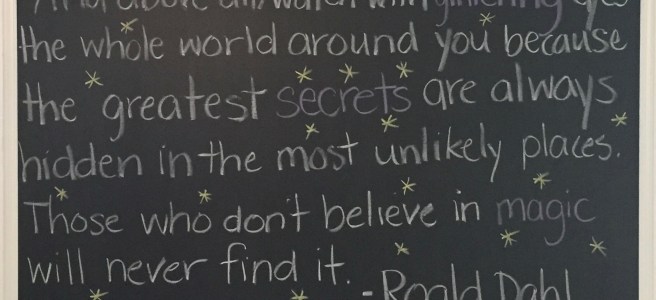 And above all, watch with glittering eyes
the whole world around you because
the greatest secrets are always
hidden in the most unlikely places.
Those who don't believe in magic
will never find it.
-Roald Dahl